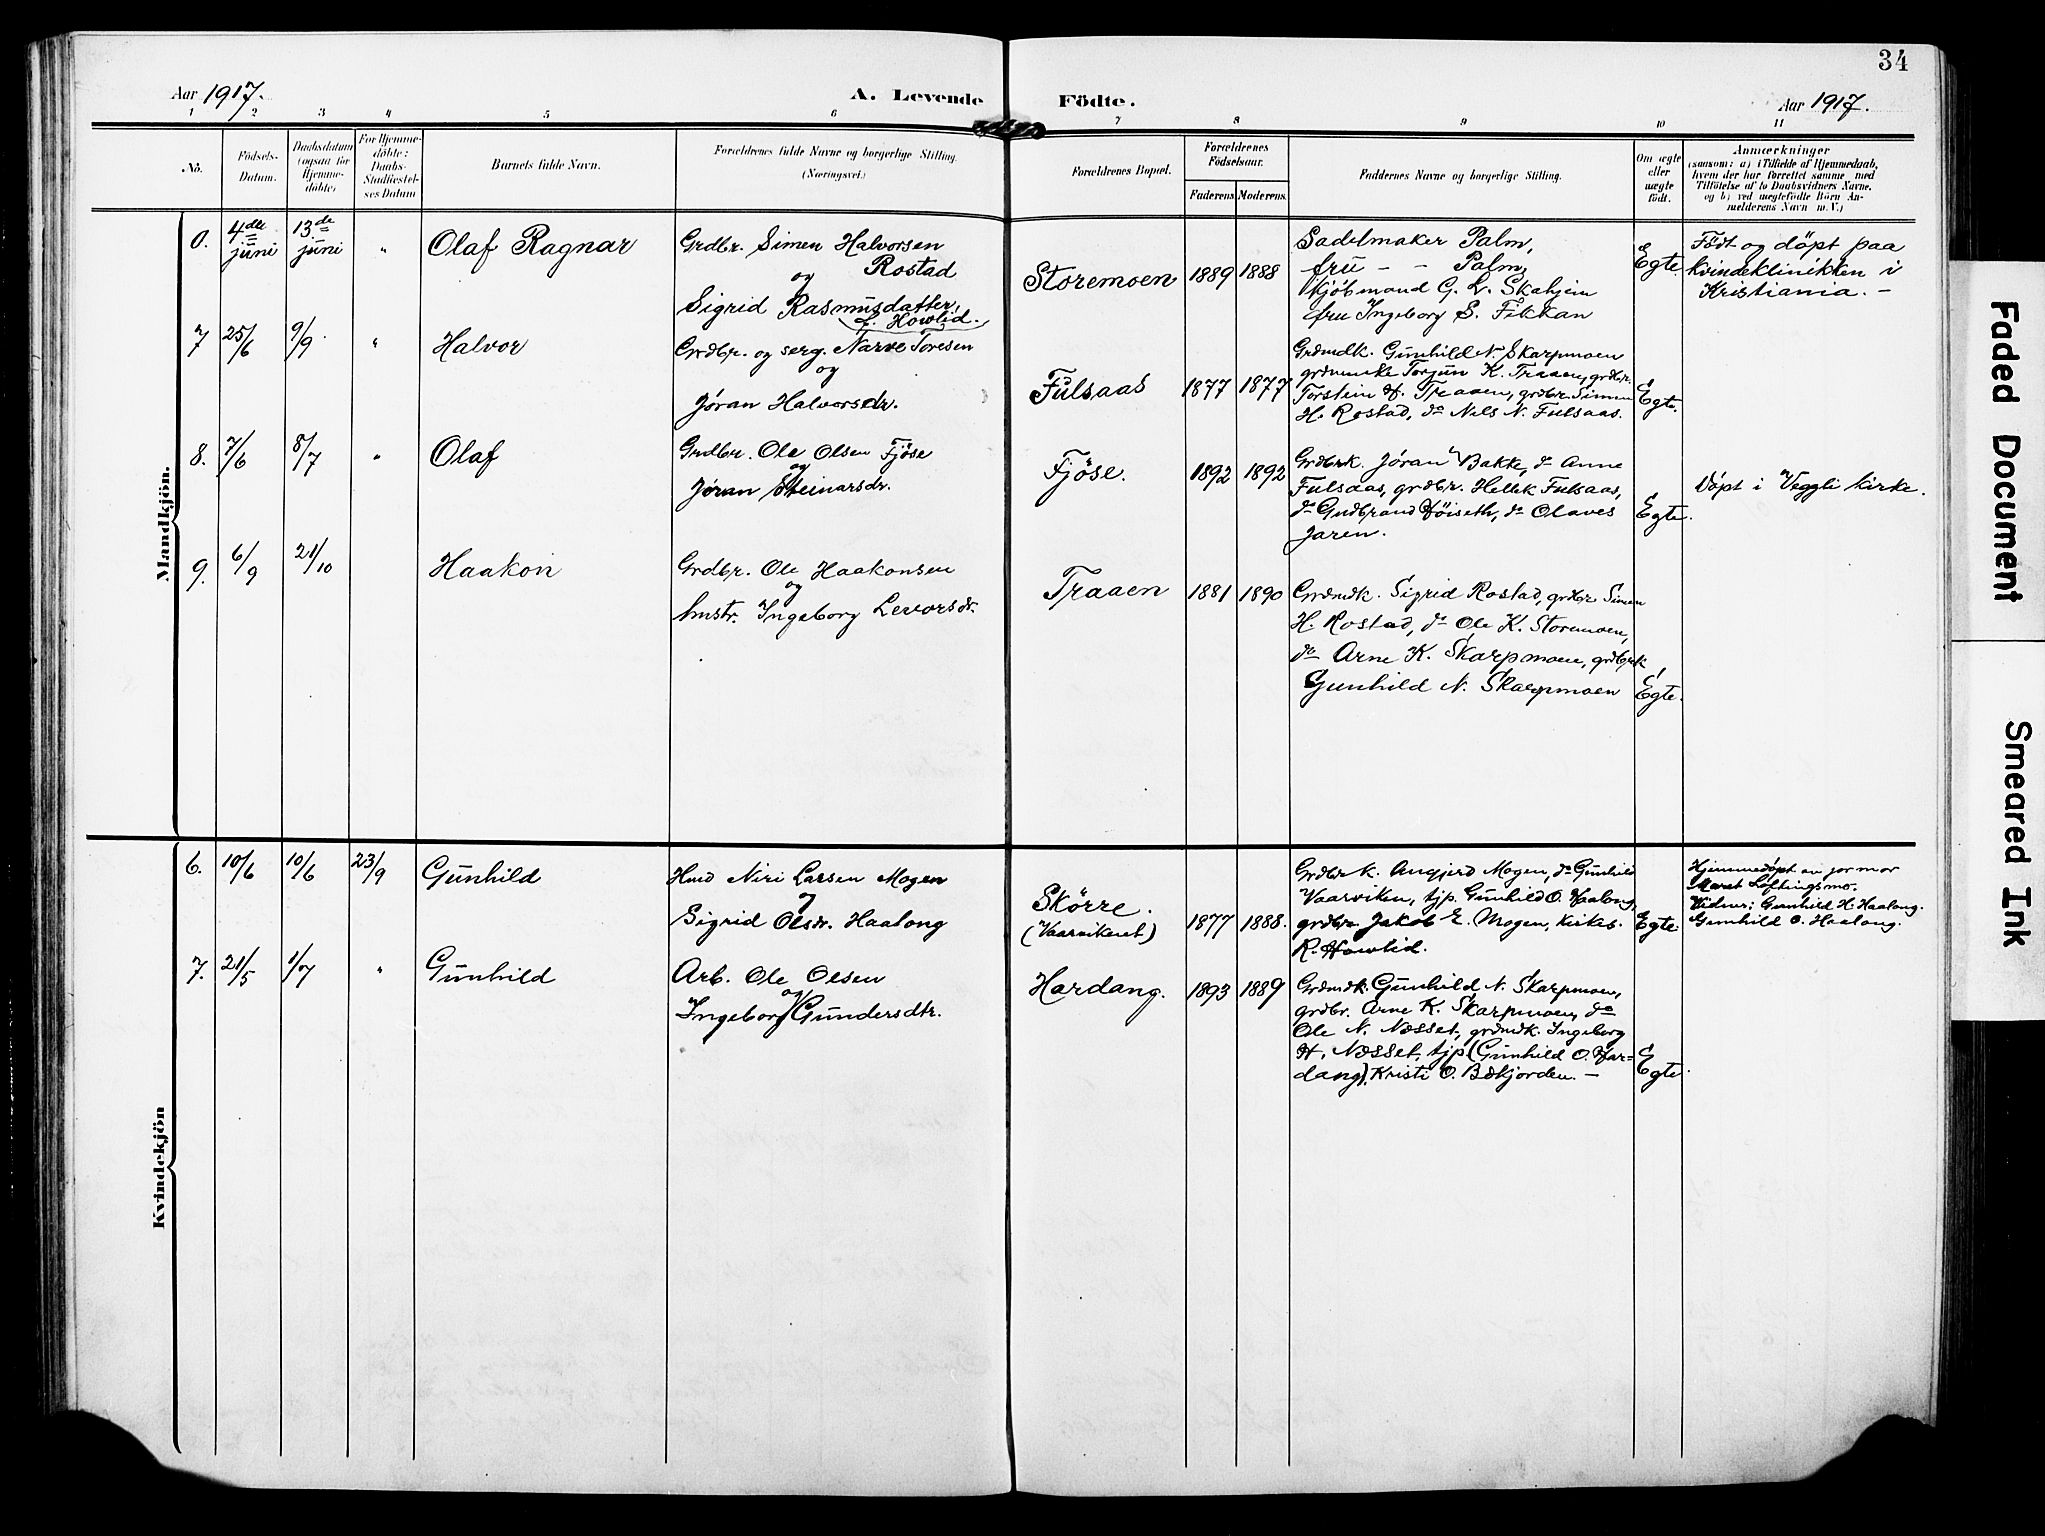 34
Aar 1917.
A. Levende Födte.
Aar 1917.
1 2 3 4 5 6 7 8 9 10 11
No.
Födsels-
Datum.
Daabsdatum
(ogsaa for
Hjemme-
döbte)
For Hjemme-
döbte:
Daabs-
Stadfæstel-
ses Datum
Barnets fulde Navn.
Forældrenes fulde Navne og borgerlige Stilling.
(Næringsvei.)
Forældrenes Bopæl.
Forældrenes
Födselsaar.
Faderens Moderens
Faddernes Navne og borgerlige Stilling.
Om ægte
eller
uægte
födt.
Anmærkninger
(saasom: a) i Tilfælde af Hjemmedaab,
hvem der har forrettet samme med
Tilföielse af to Daabsvidners Navne,
og b) ved uægtefödte Börn An-
melderens Navn m. V.)
Mandkjön.
0.
4de
juni
13de
juni
"
Olaf Ragnar
Grdbr. Simen Halvorsen
Rostad
og
Sigrid Rasmusdatter,
f. Howlid.
Storemoen
1889
1888
Sadelmaker Palm,
fru - - Palm,
Kjöbmand G. L. Skahjem
fru Ingeborg S. Fikkan
Egte
Födt og döpt paa
kvindeklinikken i
Kristiania. -
7
25/6
9/9
"
Halvor
Grdbr. og serg. Narve Toresen
og
Jøran Halvorsdr.
Fulsaas
1877
1877
Grdmdk. Gunhild N. Skarpmoen
grdmenke Torjun K. Traaen, grdbr.
Torstein H. Traaen, grdbr. Simen
H. Rostad, do Nils N. Fulsaas.
Egte.
8.
7/6
8/7
"
Olaf
Grdbr. Ole Olsen Fjöse
og
Jøran Steinarsdr.
Fjöse.
1892
1892
Grdbrk. Jøran Bakke, do Anne
Fulsaas, grdbr. Hellek Fulsaas,
do Gudbrand Høiseth, do Olaves
Jaren.
Egte.
Döpt i Veggli kirke.
9.
6/9
21/10
Haakon
Grdbr. Ole Haakonsen
og
hustr. Ingeborg Levorsdr.
Traaen
1881
1890
Grdmdk. Sigrid Rostad, grdbr Simen
H. Rostad, do Ole K. Storemoen,
do Arne K. Skarpmoen, grdbrk
Gunhild N. Skarpmoen
Egte.
Kvindekjön
6.
10/6
10/6
23/9
Gunhild
Hmd Niri Larsen Mogen
og
Sigrid Olsdr. Haalong
Skörre.
(Vaarvikeret)
1877
1888.
Grdbrk. Angjerd Mogen, do Gunhild
Vaarviken, tjp. Gunhild O. Haalong,
grdbr. Jakob E. Mogen, kirkes.
R. Howlid.
Egte.
Hjemmedöpt av jormor
Maret Loftingsmo.
Vidner: Gunhild H. Haalong.
Gunhild O. Haalong.
7.
21/5
1/7
"
Gunhild
Arb. Ole Olsen
og
Ingeborg Gundersdtr.
Hardang.
1893
1889
Grdmdk. Gunhild N. Skarpmoen,
grdbr. Arne K. Skarpmoen, do
Ole N. Næsset, grdmdk. Ingeborg
H. Næsset, tjp. (Gunhild O. Har=
dang), Kristi O. Bækjorden. -
Egte.
Faded Document
Smeared Ink